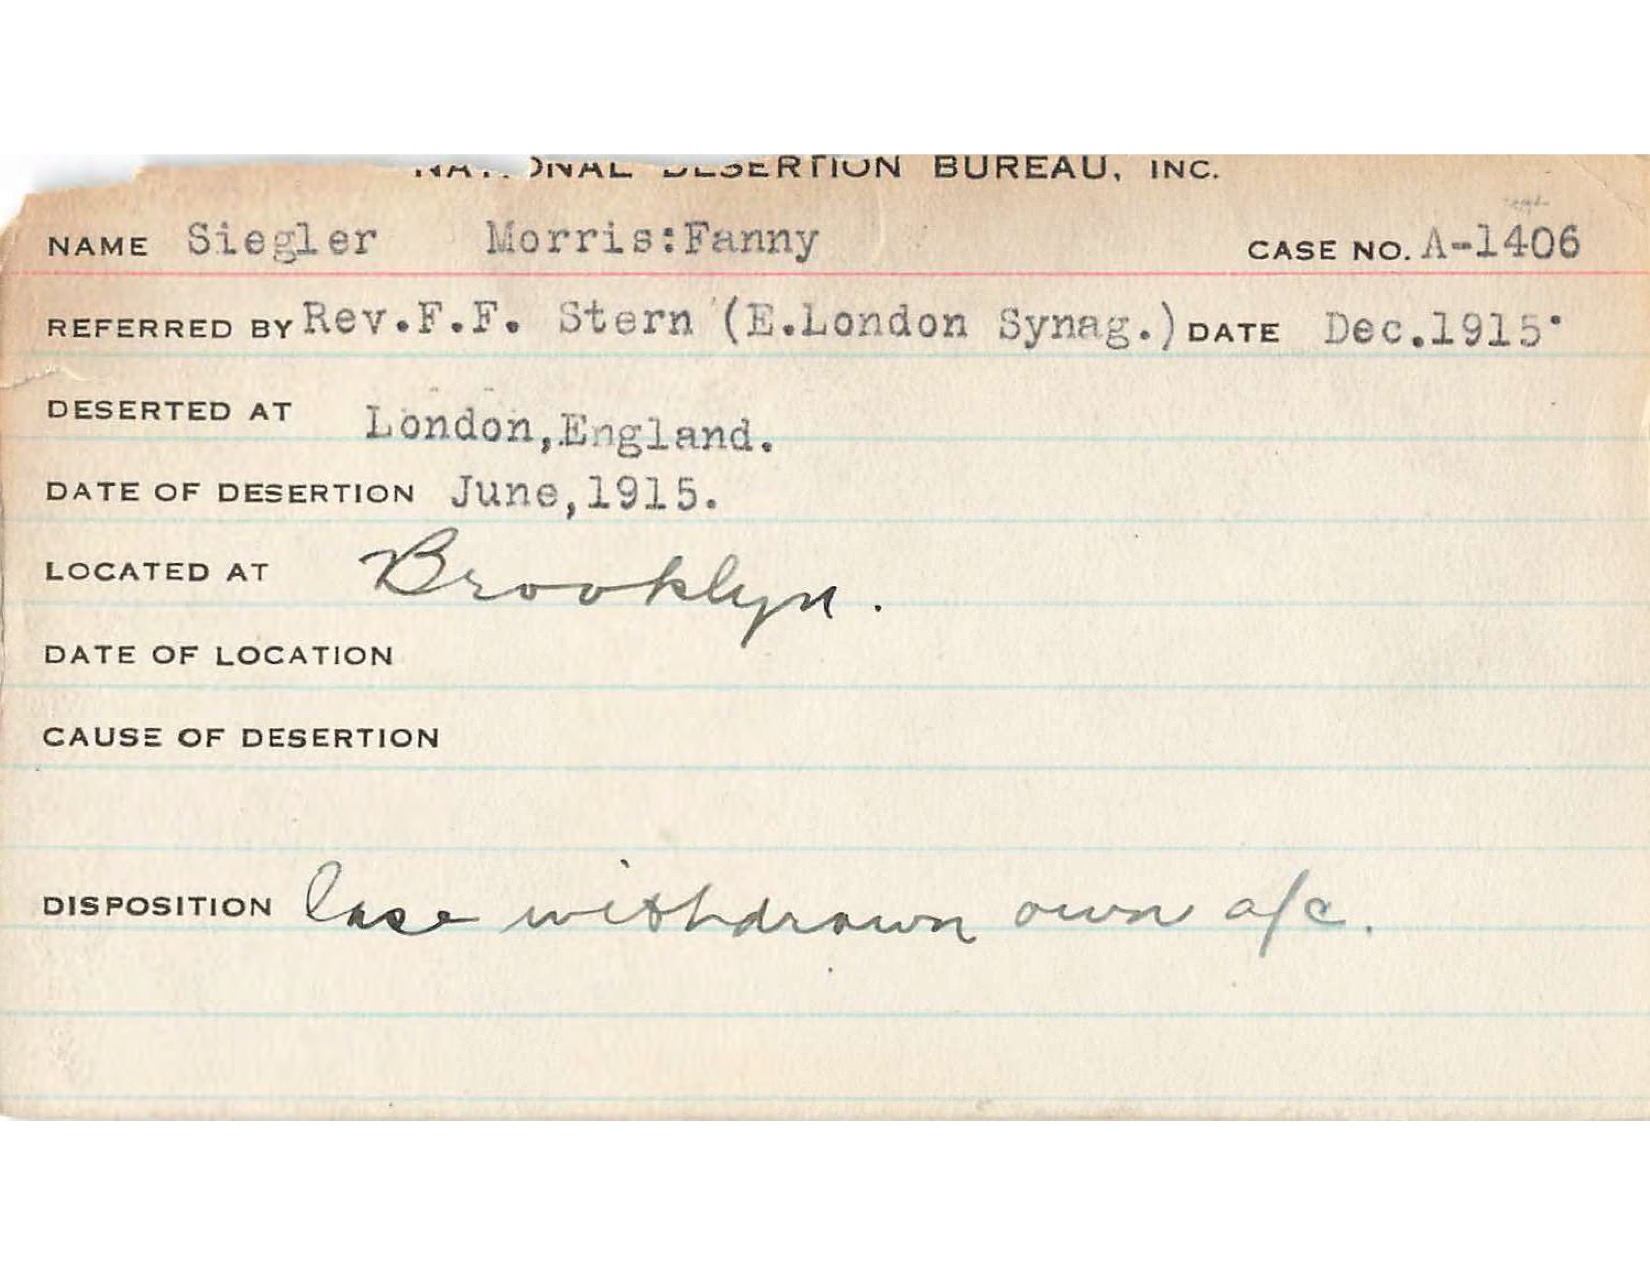 NATIONAL DESERTION BUREAU, INC.
NAME Siegler Morris:Fanny CASE NO. A-1406
REFERRED BY Rev.F.F. Stern (E.London Synag.) DATE Dec.1915.
DESERTED AT London,England.
DATE OF DESERTION June,1915.
LOCATED AT Brooklyn.
DATE OF LOCATION
CAUSE OF DESERTION
DISPOSITION Case withdrawn own a/c.